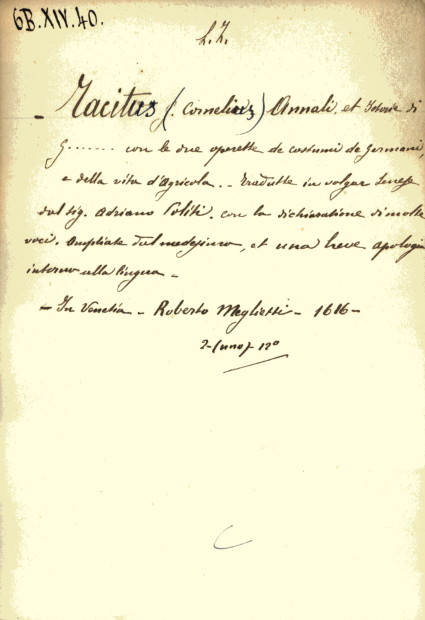 6B.XIV.40.
L. Z.
- Tacitus (Cornelius) Annali, et Istorie di
G....... con le due operette de costumi de Germani,
e della vita d'Agricola. - Tradutte in volgar Senese
dal sig. Adriano Politi. con la dichiaratione di molte
voci. Ampliate dal medesimo, et una breve apologia
intorno alla lingua -
- In Venetia - Roberto Meglietti - 1616 -
2-(uno)- 12º